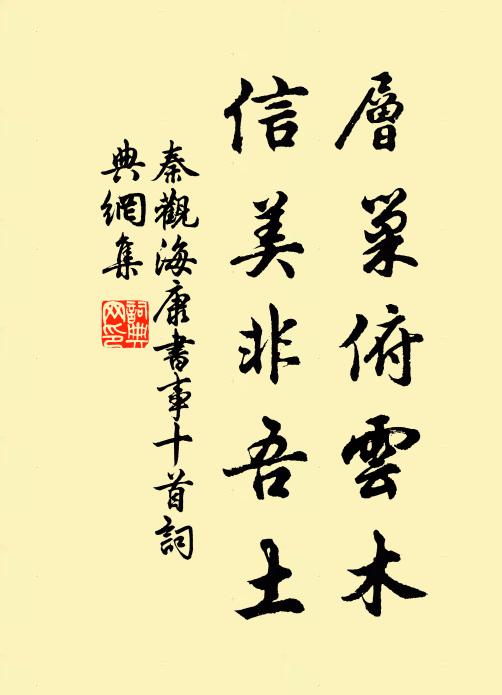 層巢俯雲木
信美非吾土
秦觀海康書事十首詞
典網集
詞典
网印